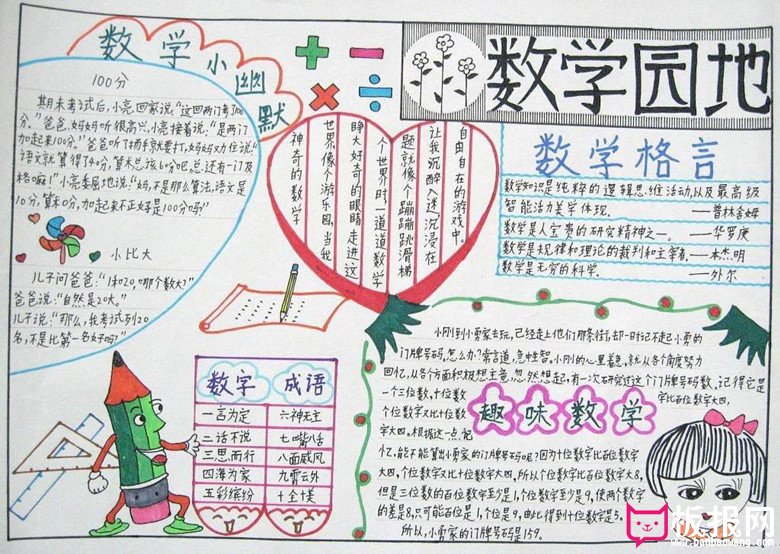 数学小幽默
100分
期末考试后,小亮回家说:“这回两门考100
分。”爸爸、妈妈听很高兴,小亮接着说:“是两门
加起来100分。”爸爸听了扬手就要打,妈妈对位说:“
语文就算得了40分,算术总该60分吧,总还有一门及
格嘛!”小亮委屈地说:“妈,不是那么算法,语文是
10分,算术0分,加起来不正好是100分吗?”
小比大
儿子问爸爸:“1和20,哪个数大?”
爸爸说:“自然是20大。”
儿子说:“那么,我考试列20
名,不是比第一名好吗?”
自由自在的游戏中。
让我沉醉入迷,沉浸在
题就像个蹦蹦跳滑梯
个世界时,一道道数学
睁大好奇的眼睛走进这
世界像个游乐园,当我
神奇的数学
数学园地
数学格言
数学知识是纯粹的逻辑思维活动,以及最高级
智能活力美学体现。——普林舍姆
数学是人宝贵的研究精神之一。——华罗庚
数学是规律和理论的裁判和主宰者。——本杰明
数学是无穷的科学。——外尔
数字 成语
一言为定 六神无主
二话不说 七嘴八舌
三思而行 八面威风
四海为家 九霄云外
五彩缤纷 十全十美
小刚到小勇家去玩,已经走上他们那条街,却一时记不起小勇的
门牌号码,怎么办?常言道,急中生智。小刚的心里着急,就从各个角度努力
回忆,从各个方面积极想主意,忽然想起,有一次研究过这个门牌号码数,记得它是
一个三位数,十位数字比百位数字大四,
个位数字又比十位数
字大四。根据这一点记
趣味数学
忆,能不能算出小勇家的门牌号码呢?因为十位数字比百位数字
大四,个位数字又比十位数字大四,所以个位数字比百位数字大8,
但是三位数的百位数字至少是1,个位数字至少是9,使两个数字
的差是8,只可能百位是1,个位是9,由此得到十位数字是5。
所以,小勇家的门牌号码是159。
板报网